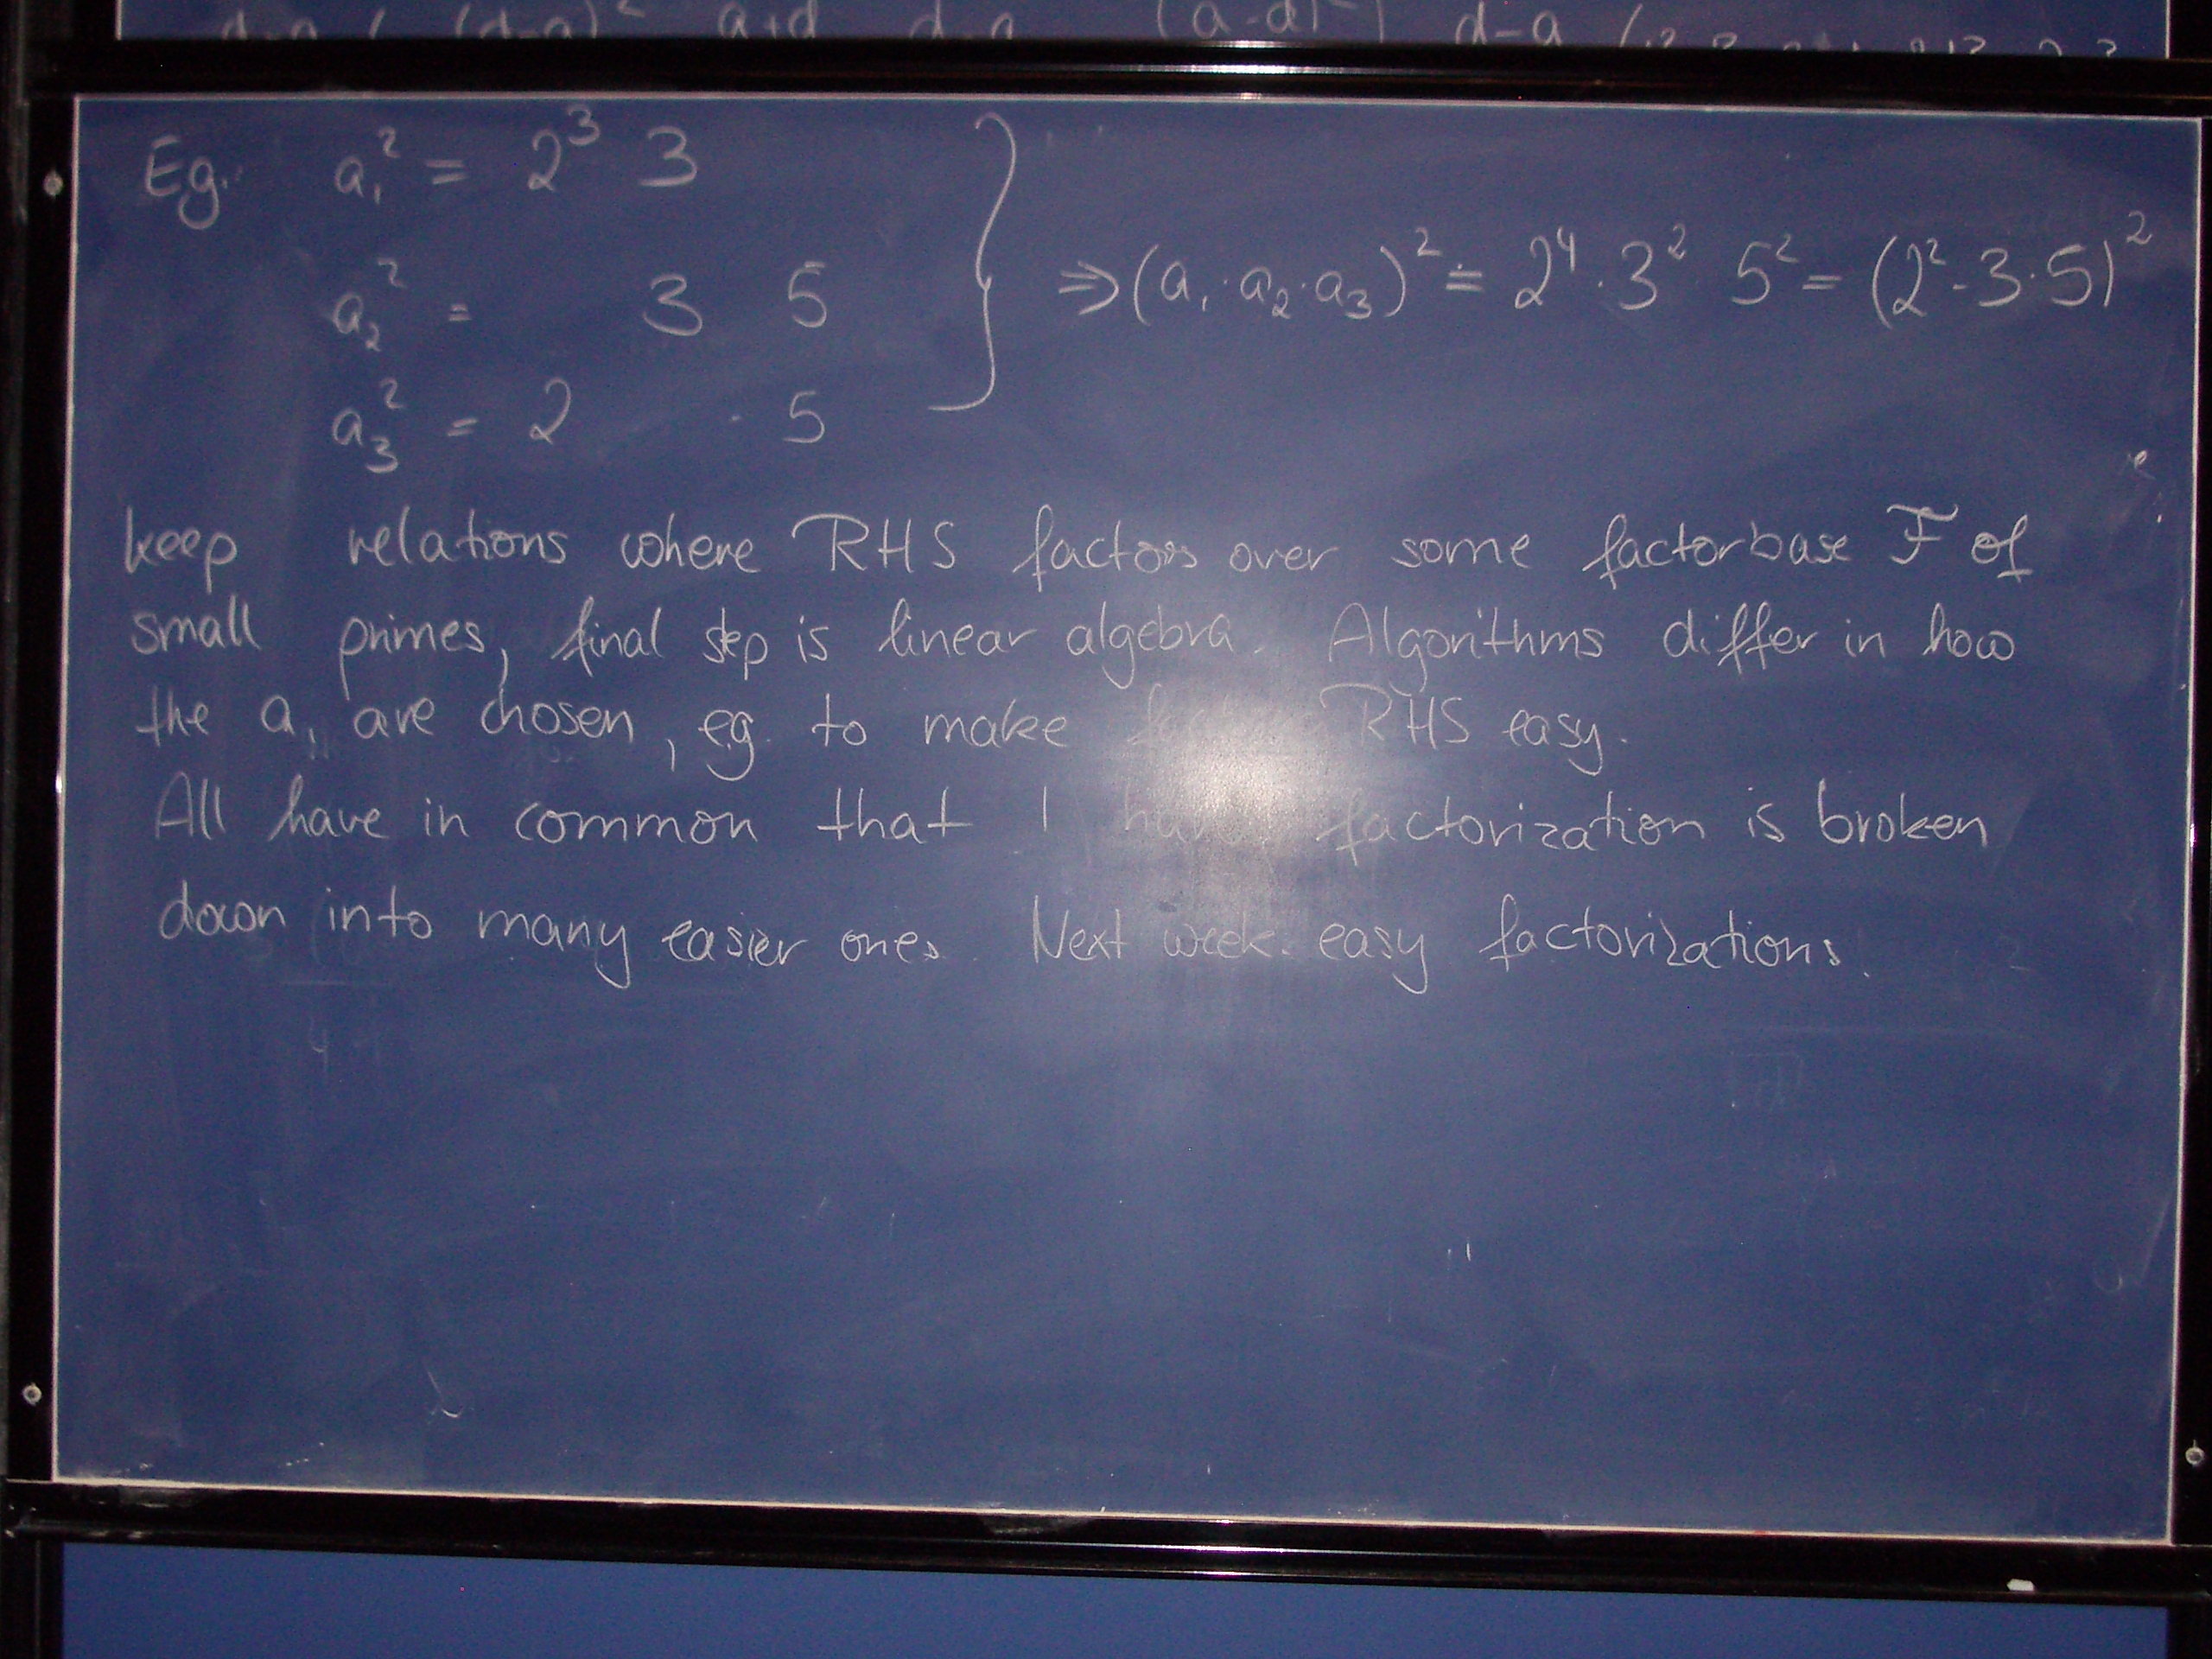 d-a a+d d-a (a-d) d-a
Eg. a₁² = 2³ 3
a₂² = 3 5
a₃² = 2 · 5
} ⇒ (a₁·a₂·a₃)² ≐ 2⁴·3² 5² = (2²·3·5)²
keep relations where RHS factors over some factorbase F of
small primes, final step is linear algebra. Algorithms differ in how
the aᵢ are chosen, eg. to make RHS easy.
All have in common that 1 hard factorization is broken
down into many easier ones. Next week: easy factorizations.